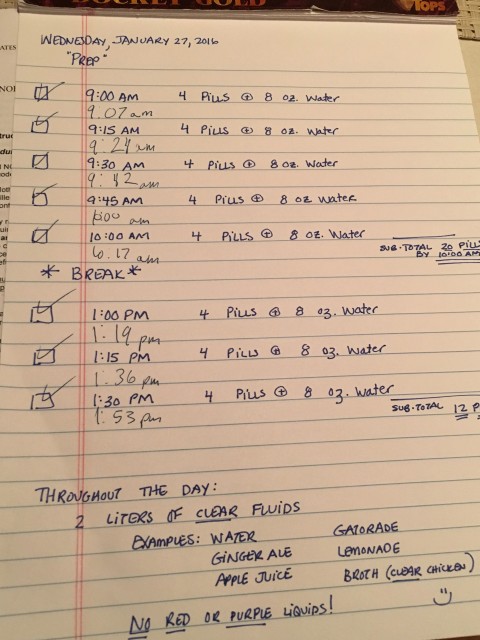 DOCKET GOLD
TOPS
WEDNESDAY, JANUARY 27, 2016
"PREP"
9:00 AM 4 Pills ⊕ 8 oz. Water
9:07 am
9:15 AM 4 Pills ⊕ 8 oz. Water
9:24 am
9:30 AM 4 Pills ⊕ 8 oz. Water
9:42 am
9:45 AM 4 Pills ⊕ 8 oz Water
am
10:00 AM 4 Pills ⊕ 8 oz. Water
am
SUB-TOTAL 20 PILLS
BY 10:00 AM
* BREAK *
1:00 PM 4 Pills ⊕ 8 oz. Water
1:19 pm
1:15 PM 4 Pills ⊕ 8 oz. Water
1:36 pm
1:30 PM 4 Pills ⊕ 8 oz. Water
1:53 pm
SUB-TOTAL 12 P
THROUGHOUT THE DAY:
2 LITERS OF CLEAR FLUIDS
EXAMPLES: WATER GATORADE
GINGER ALE LEMONADE
APPLE JUICE BROTH (CLEAR CHICKEN)
NO RED OR PURPLE LIQUIDS!